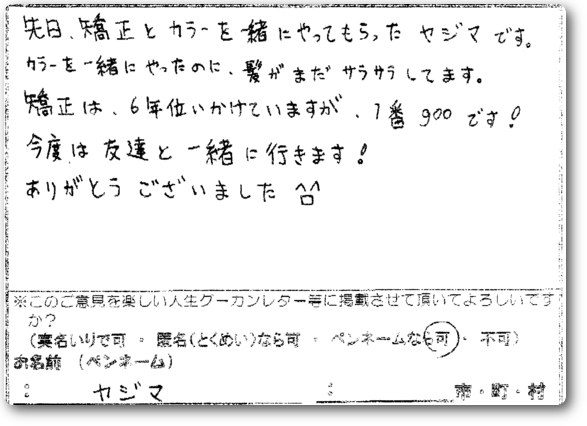 先日、矯正とカラーを一緒にやってもらったヤジマです。
カラーを一緒にやったのに、髪がまだサラサラしてます。
矯正は、6年位いかけていますが、1番 goo です!
今度は友達と一緒に行きます!
ありがとうございました ^^
※このご意見を楽しい人生グーカンレター等に掲載させて頂いてよろしいです
か?
(実名いりで可 ・ 匿名(とくめい)なら可 ・ ペンネームなら可 ・ 不可)
お名前 (ペンネーム)
: ヤジマ : 市・町・村